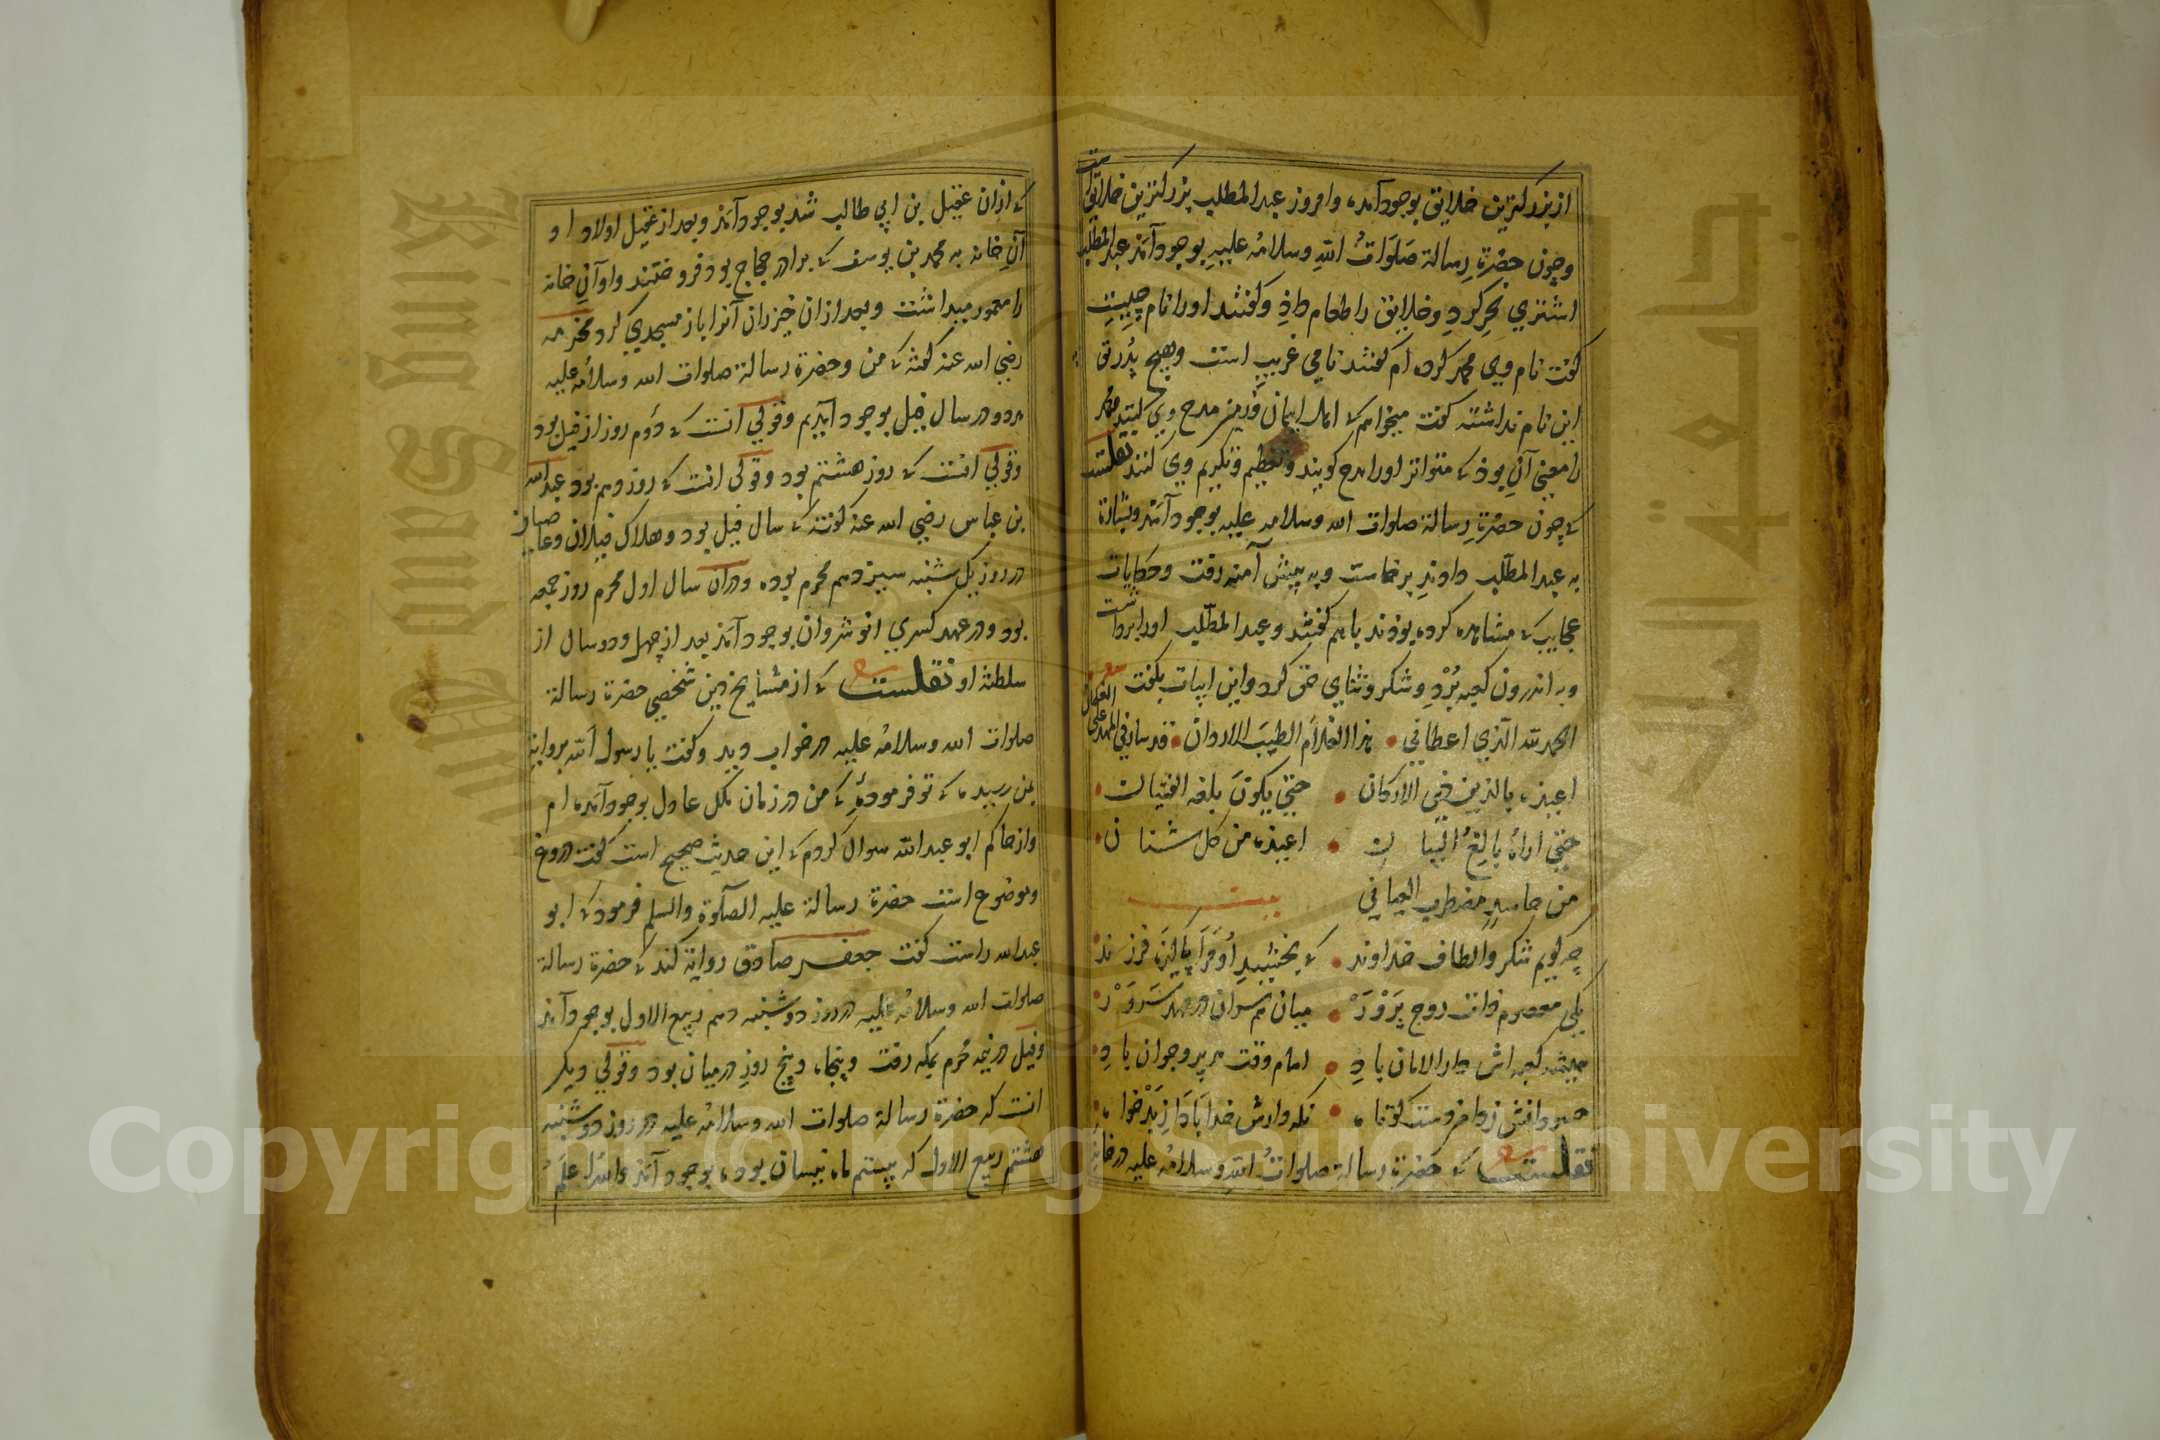 از بزرکترین خلایق بوجود آمده و امروز عبد المطلب بزرکترین خلایق است
و چون حضرة رسالة صلوات الله وسلامه علیه بوجود آمد عبد المطلب
اشتری نحر کرد و خلایق را طعام داد و کفتند او را نام چیست
کفت نام وی محمد کرده ام کفتند نامی غریب است و هیچ پدرت
این نام نداشته کفت میخواهم که اهل ایمان و زمین مدح وی کنند محمد
را معنی آن بود که متواتر او را مدح کویند و تعظیم و تکریم وی کنند نقلست
که چون حضرة رسالة صلوات الله وسلامه علیه بوجود آمد و بشارة
به عبد المطلب دادند برخاست و به پیش آمنه رفت و حکایات
عجایب که مشاهده کرده بودند باهم کفتند و عبد المطلب او را برداشت
و به اندرون کعبه برد و شکر و ثنای حق کرد و این ابیات بکفت شعر
الحمد لله الذي اعطاني هذا الغلام الطیب الاردان قد ساد في المهد علی الغلمان
اعیذه بالبیت ذي الارکان حتی یکون بلغه الفتیان
حتی اراه بالغ البنیان اعیذه من کل ذي شنان
من حاسد مضطرب العنان
بیت
چه کویم شکر والطاف خداوند که بخشید او مرا پاکیزه فرزند
یکی معصوم ذات روح پرور میان مهد
همیشه کعبه اش دار الامان باد امام وقت هر پیر و جوان باد
نکه دارش خدایا از بدخواه
نقلست که حضرة رسالة صلوات الله وسلامه علیه در خانه
که از ان عقیل بن ابي طالب شد بوجود آمد و بعد از عقیل اولاد او
آن خانه به محمد بن یوسف که برادر حجاج بود فروختند و او آن خانه
را معمور میداشت و بعد از ان خیزران آنرا باز مسجدي کرد مخرمه
رضي الله عنه کفته که من و حضرة رسالة صلوات الله وسلامه علیه
هر دو در سال فیل بوجود آمدیم و قولي آنست که دوم روز از فیل بود
و قولي آنست که روز هشتم بود و قولی انست که روز دهم بود عبد الله
بن عباس رضي الله عنه کفته که سال فیل بود و هلاک فیلان
در روز یک شنبه سیزدهم محرم بوده و در ان سال اول محرم روز جمعه
بود و در عهد کسري انوشروان بوجود آمد بعد از چهل و دو سال از
سلطنة او نقلست که از مشایخ دین شخصي حضرة رسالة
صلوات الله وسلامه علیه در خواب دید و کفت یا رسول الله روایة
بمن رسیده که تو فرمودۀ که من در زمان ملک عادل بوجود آمده ام
و از حاکم ابو عبد الله سوال کردم که این حدیث صحیح است کفت دروغ
و موضوع است حضرة رسالة علیه الصلوة والسلم فرمود که ابو
عبد الله راست کفت جعفر صادق روایة کند که حضرة رسالة
صلوات الله وسلامه علیه در روز دوشنبه دهم ربیع الاول بوجود آمد
و فیل در نیمه محرم بمکه رفت و پنجاه و پنج روز در میان بود و قولي دیکر
انست که حضرة رسالة صلوات الله وسلامه علیه در روز دوشنبه
هشتم ربیع الاول که بیستم ماه نیسان بوده بوجود آمد والله اعلم
Copyright © King Saud University